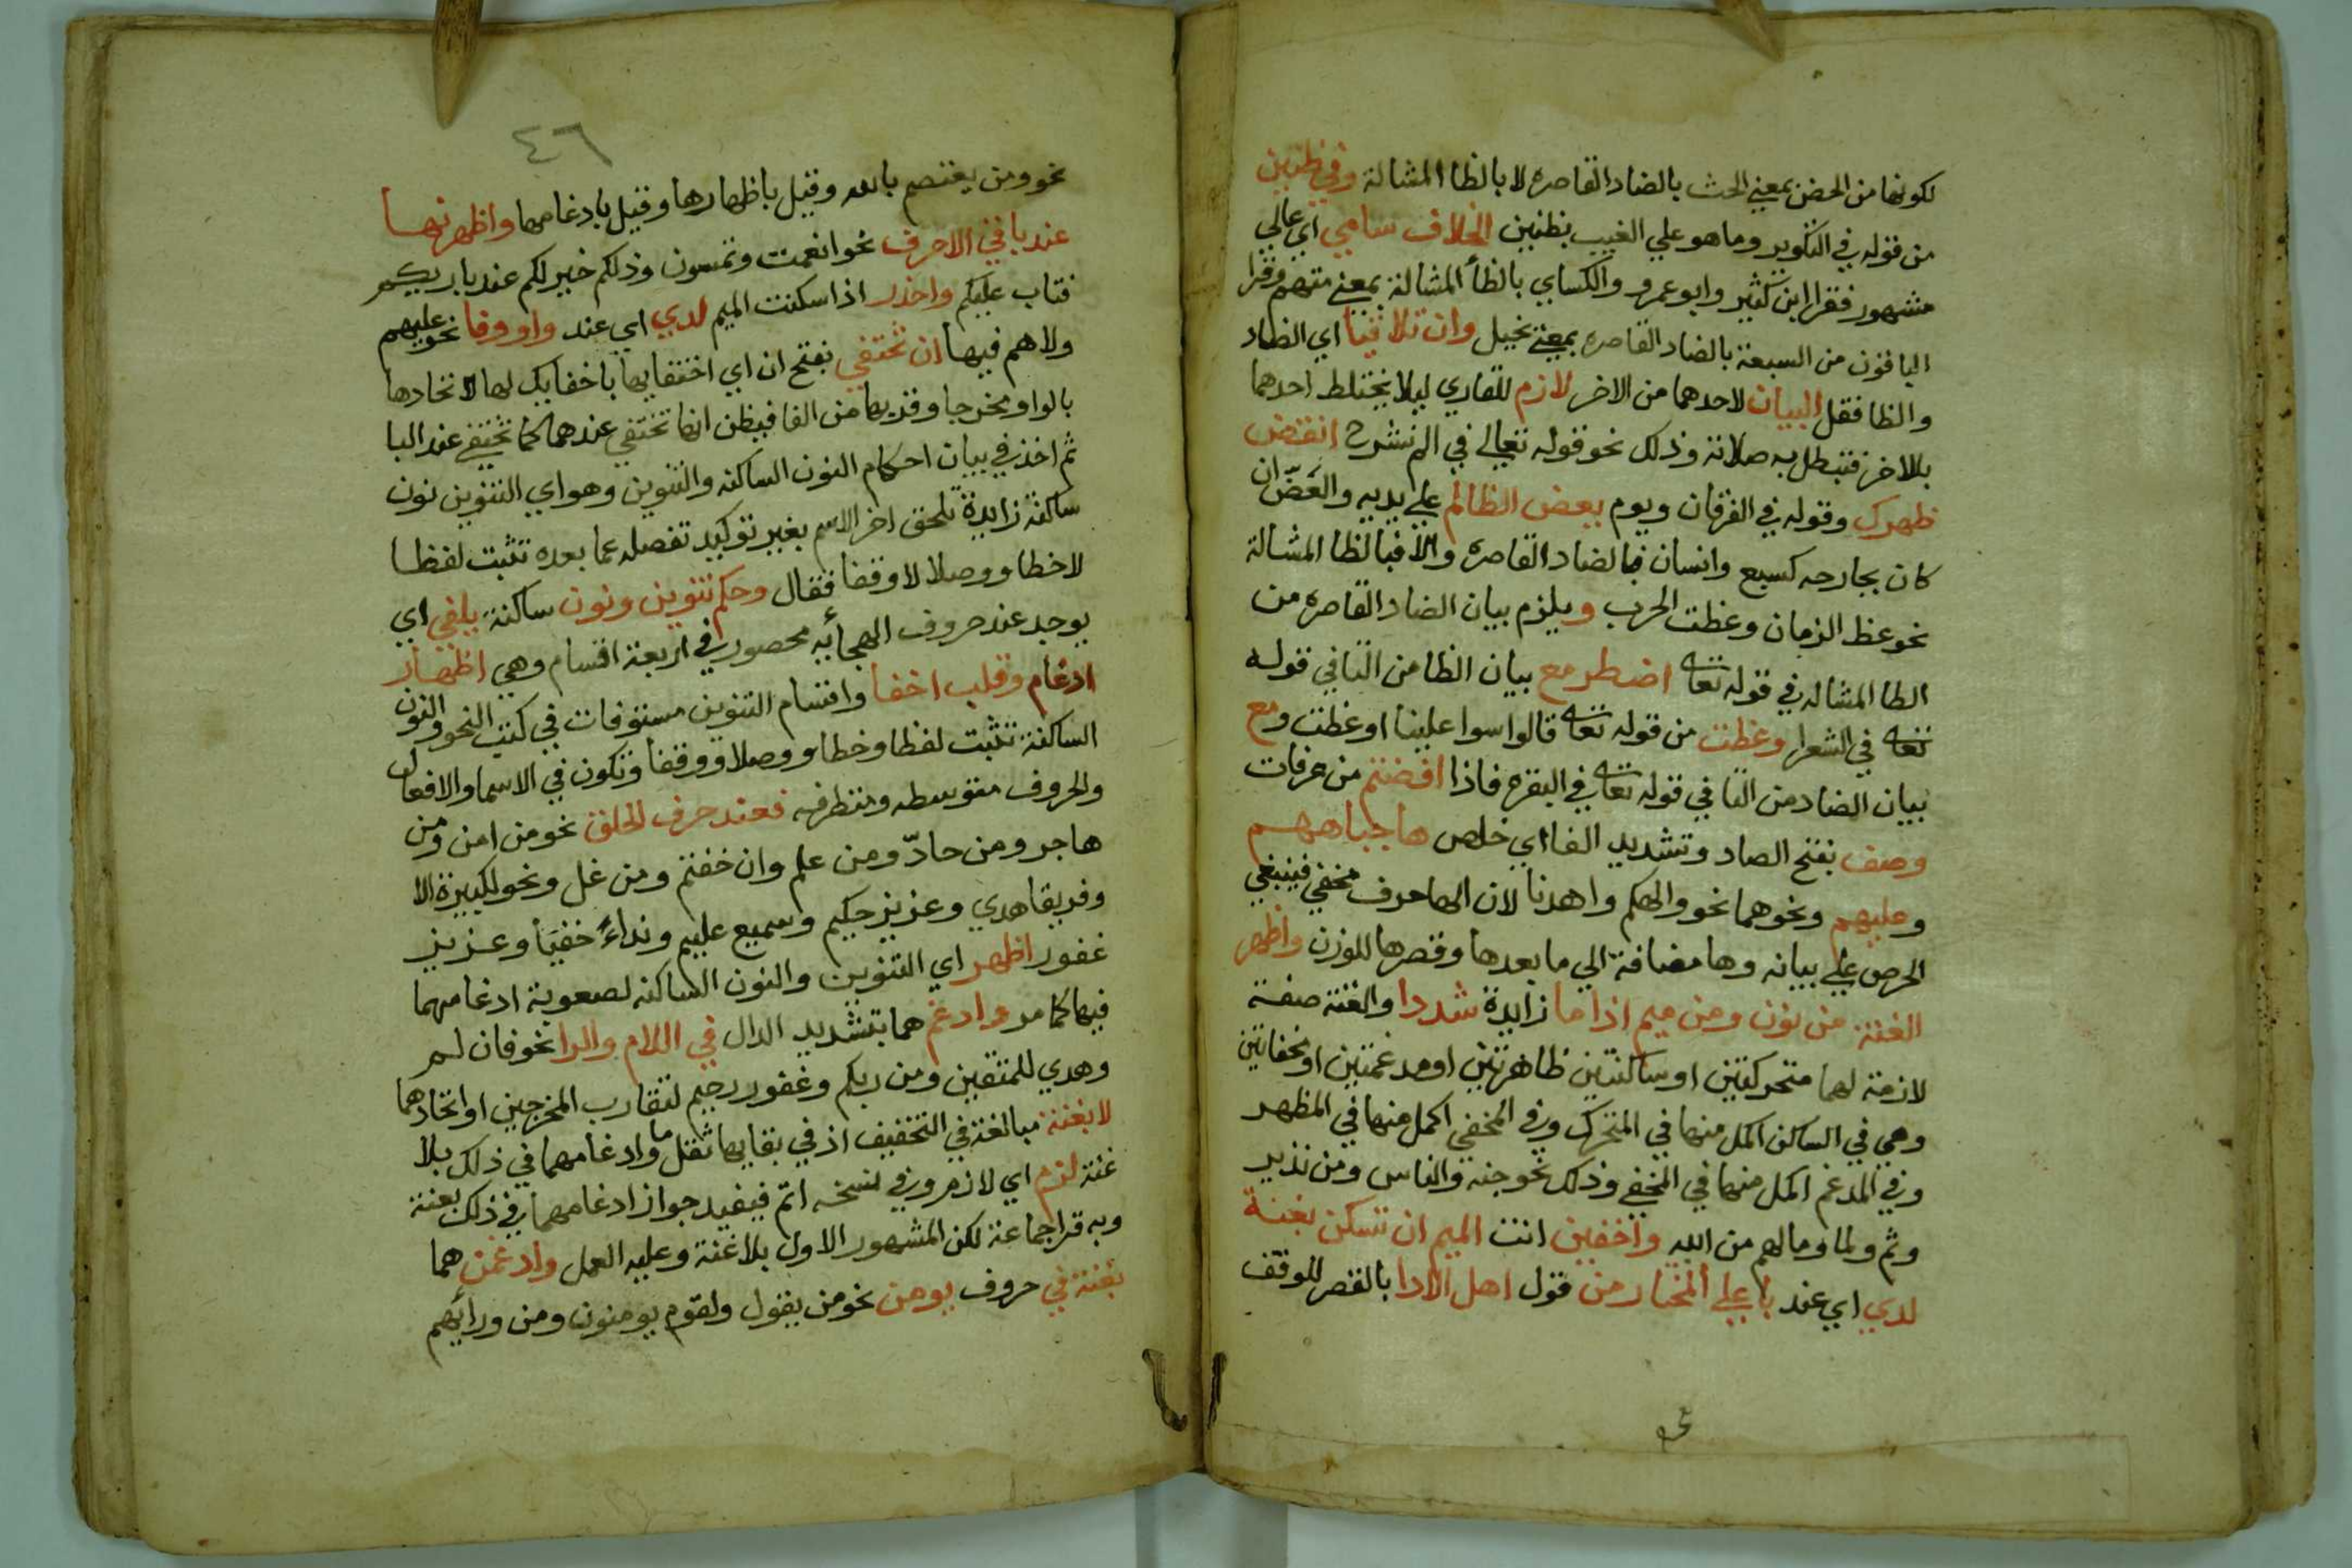 لكونها من الحض بمعني الحث بالضاد القاصره لا بالظا المشالة وفي ظنين
من قوله في التكوير وما هو علي الغيب بظنين الخلاف سامي اي عالي
مشهور فقرا ابن كثير وابو عمرو والكساي بالظأ المشالة بمعني متهم وقرا
الباقون من السبعة بالضاد القاصره بمعني بخيل وان تلاقيا اي الضاد
والظا فقل البيان لاحدهما من الاخر لازم للقاري ليلا يختلط احدهما
بالاخر فتبطل به صلاته وذلك نحو قوله تعالي في الم نشرح انقض
ظهرك وقوله في الفرقان ويوم يعض الظالم علي يديه والعَضّ ان
كان بجارحه كسبع وانسان فبالضاد القاصره والا فبالظا المشالة
نحو عظ الزمان وعظت الحرب ويلزم بيان الضاد القاصره من
الطا المشاله في قوله تعا اضطر مع بيان الظا من التا في قوله
تعا في الشعرا وعظت من قوله تعا قالوا سوا علينا اوعظت ومع
بيان الضاد من التا في قوله تعا في البقرة فاذا افضتم من عرفات
وصف بفتح الصاد وتشديد الفا اي خلص ها جباههم
وعليهم ونحوهما نحو والهكم واهدنا لان الها حرف مخفي فينبغي
الحرص علي بيانه وها مضافة الي ما بعدها وقصرها للوزن واظهر
الغنة من نون ومن ميم اذا ما زايدة شددا والغنة صفة
لازمة لهما متحركتين او ساكنتين ظاهرتين او مدغمتين او مخفاتين
وهي في الساكن اكمل منها في المتحرك وفي المخفي اكمل منها في المظهر
وفي المدغم اكمل منها في المخفي وذلك نحو جنه والناس ومن نذير
وثم ولما وما لهم من الله واخفين انت الميم ان تسكن بغنة
لدي اي عند با علي المختار من قول اهل الادا بالقصر للوقف
٤٦
نحو ومن يعتصم بالله وقيل باظهارها وقيل بادغامها واظهرنها
عند باقي الاحرف نحو انعمت وتمسون وذلكم خير لكم عند باريكم
فتاب عليكم واحذر اذا سكنت الميم لدي اي عند واو وفا نحو عليهم
ولا هم فيها ان تختفي بفتح ان اي اختفايها باخفايك لها لاتحادها
بالواو مخرجا وقربها من الفا فيظن انها تختفي عندهما كما تختفي عند البا
ثم اخذ في بيان احكام النون الساكنه والتنوين وهو اي التنوين نون
ساكنة زايدة تلحق اخر الاسم بغير توكيد تفصله عما بعده تثبت لفظا
لا خطا ووصلا لا وقفا فقال وحكم تنوين ونون ساكنة يلفي اي
يوجد عند حروف الهجائيه محصور في اربعة اقسام وهي اظهار
ادغام وقلب اخفا واقسام التنوين مستوفات في كتب النحو والنون
الساكنة تثبت لفظا وخطا ووصلا ووقفا وتكون في الاسما والافعال
والحروف متوسطه ومتطرفه فعند حرف الحلق نحو من امن ومن
هاجر ومن حادّ ومن علم وان خفتم ومن غل ونحو لكبيرة الا
وفريقا هدي وعزيز حكيم وسميع عليم ونداءً خفيّا وعزيز
غفور اظهر اي التنوين والنون الساكنه لصعوبة ادغامهما
فيها كما مر وادغم هما بتشديد الدال في اللام والرا نحو فان لم
وهدي للمتقين ومن ربكم وغفور رحيم لتقارب المخرجين او اتحادهما
لا بغنة مبالغة في التخفيف اذ في بقايها ثقل ما وادغامهما في ذلك بلا
غنة لزم اي لازم وفي نسخه اتم فيفيد جواز ادغامهما في ذلك بغنة
وبه قرا جماعة لكن المشهور الاول بلا غنة وعليه العمل وادغمن هما
بغنة في حروف يومن نحو من يقول ولقوم يومنون ومن ورائهم